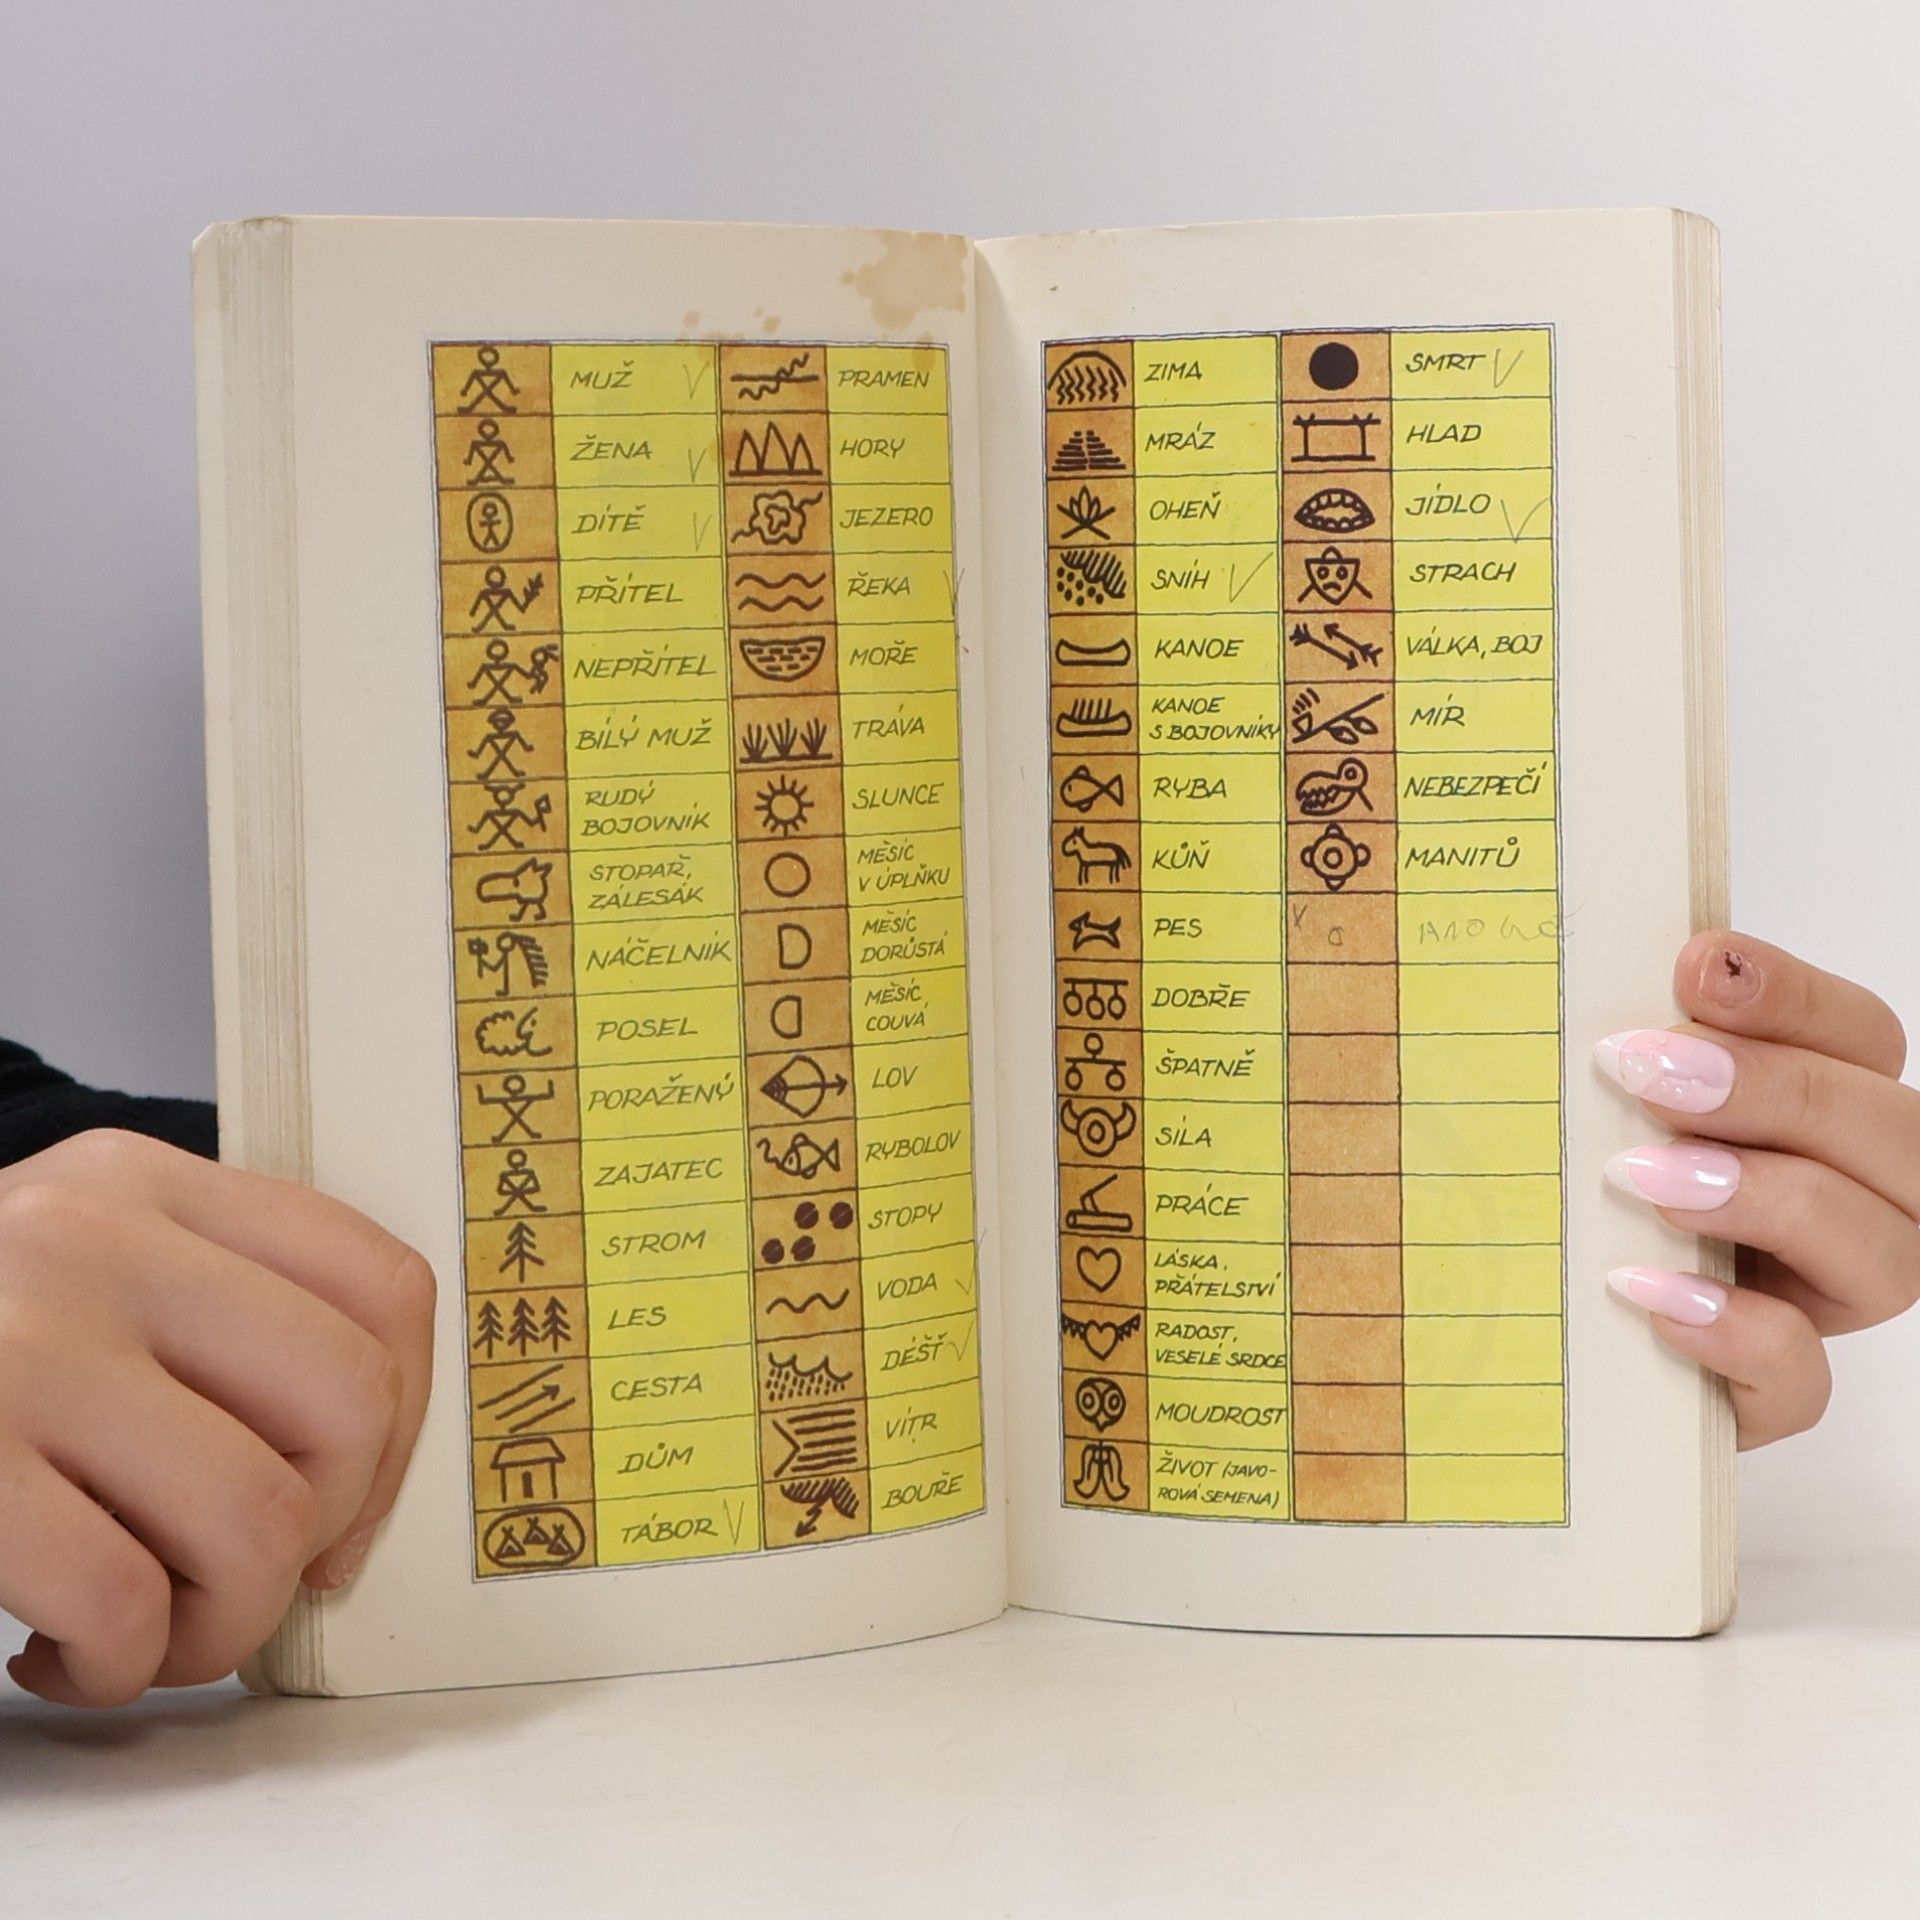 MUŽ
ŽENA
DÍTĚ
PŘÍTEL
NEPŘÍTEL
BÍLÝ MUŽ
RUDÝ
BOJOVNÍK
STOPAŘ,
ZÁLESÁK
NÁČELNÍK
POSEL
PORAŽENÝ
ZAJATEC
STROM
LES
CESTA
DŮM
TÁBOR
PRAMEN
HORY
JEZERO
ŘEKA
MOŘE
TRÁVA
SLUNCE
MĚSÍC
V ÚPLŇKU
MĚSÍC
DORŮSTÁ
MĚSÍC
COUVÁ
LOV
RYBOLOV
STOPY
VODA
DÉŠŤ
VÍTR
BOUŘE
ZIMA
MRÁZ
OHEŇ
SNÍH
KANOE
KANOE
S BOJOVNÍKY
RYBA
KŮŇ
PES
DOBŘE
ŠPATNĚ
SÍLA
PRÁCE
LÁSKA,
PŘÁTELSTVÍ
RADOST,
VESELÉ SRDCE
MOUDROST
ŽIVOT (JAVO-
ROVÁ SEMENA)
SMRT
HLAD
JÍDLO
STRACH
VÁLKA, BOJ
MÍR
NEBEZPEČÍ
MANITŮ